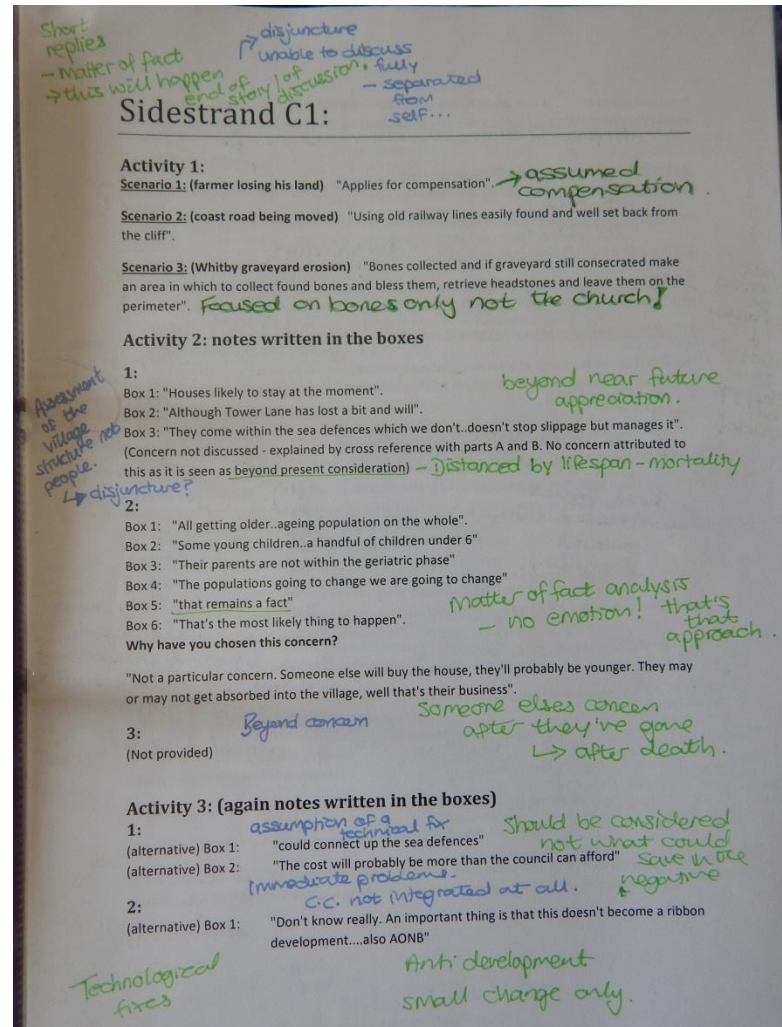 Short
replies
- Matter of fact
→ this will happen
end of
story / of
discussion.
→ disjuncture
unable to discuss
fully
- separated
from
self...
Sidestrand C1:
Activity 1:
Scenario 1: (farmer losing his land) "Applies for compensation". → assumed
compensation.
Scenario 2: (coast road being moved) "Using old railway lines easily found and well set back from
the cliff".
Scenario 3: (Whitby graveyard erosion) "Bones collected and if graveyard still consecrated make
an area in which to collect found bones and bless them, retrieve headstones and leave them on the
perimeter". Focused on bones only not the church!
Activity 2: notes written in the boxes
1:
Box 1: "Houses likely to stay at the moment".
Box 2: "Although Tower Lane has lost a bit and will".
Box 3: "They come within the sea defences which we don't..doesn't stop slippage but manages it".
(Concern not discussed - explained by cross reference with parts A and B. No concern attributed to
this as it is seen as beyond present consideration) - Distanced by lifespan - mortality
beyond near future
appreciation.
Assessment
of the
village
structure not
people.
↳ disjuncture?
2:
Box 1: "All getting older..ageing population on the whole".
Box 2: "Some young children..a handful of children under 6"
Box 3: "Their parents are not within the geriatric phase"
Box 4: "The populations going to change we are going to change"
Box 5: "that remains a fact"
Box 6: "That's the most likely thing to happen".
Matter of fact analysis
- no emotion! 'that's
that
approach.
Why have you chosen this concern?
"Not a particular concern. Someone else will buy the house, they'll probably be younger. They may
or may not get absorbed into the village, well that's their business".
Beyond concern
Someone elses concern
after they've gone
↳ after death.
3:
(Not provided)
Activity 3: (again notes written in the boxes)
1:
assumption of a
technical fix
(alternative) Box 1: "could connect up the sea defences"
(alternative) Box 2: "The cost will probably be more than the council can afford"
Should be considered
not what could
save
negative
Immediate problems.
C.C. not integrated at all.
2:
(alternative) Box 1: "Don't know really. An important thing is that this doesn't become a ribbon
development....also AONB"
Technological
fixes
Anti development
small change only.